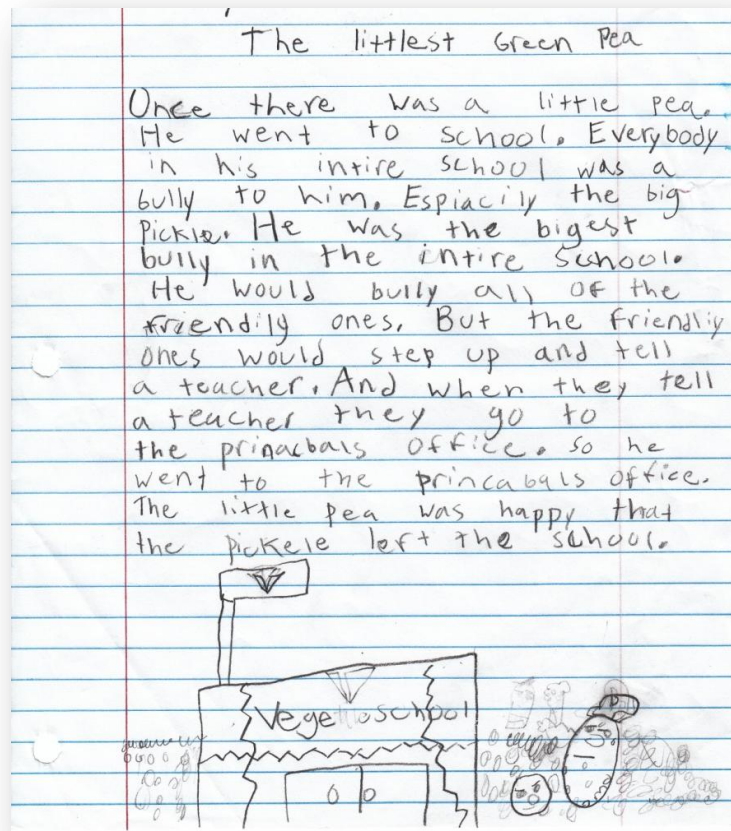 The littlest Green Pea
Once there was a little pea.
He went to school. Everybody
in his intire school was a
bully to him. Espiacily the big
Pickle. He was the bigest
bully in the intire school.
He would bully all of the
friendily ones. But the friendliy
ones would step up and tell
a teacher. And when they tell
a teacher they go to
the prinacbals office. so he
went to the princabals office.
The little pea was happy that
the pickele left the school.
Vege school
P